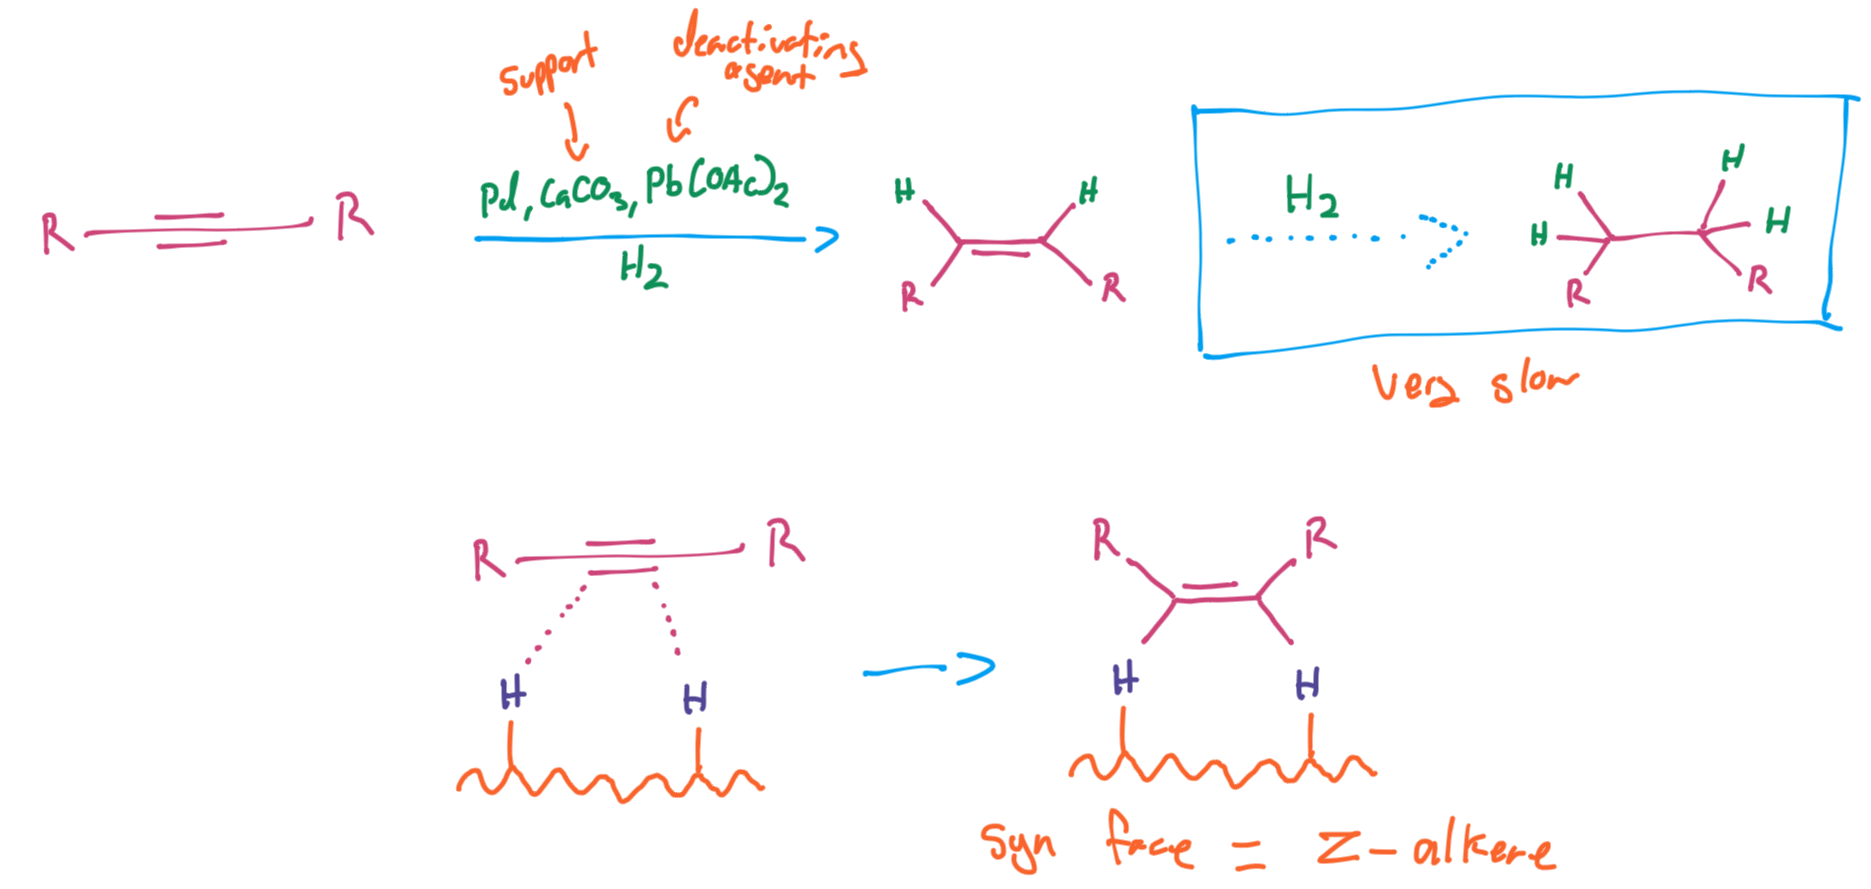 support
deactivating
agent
R R
Pd, CaCO3, Pb(OAc)2
H2
H H
R R
H2
H H
H H
R R
Very slow
R R
H H
R R
H H
Syn face = Z-alkene